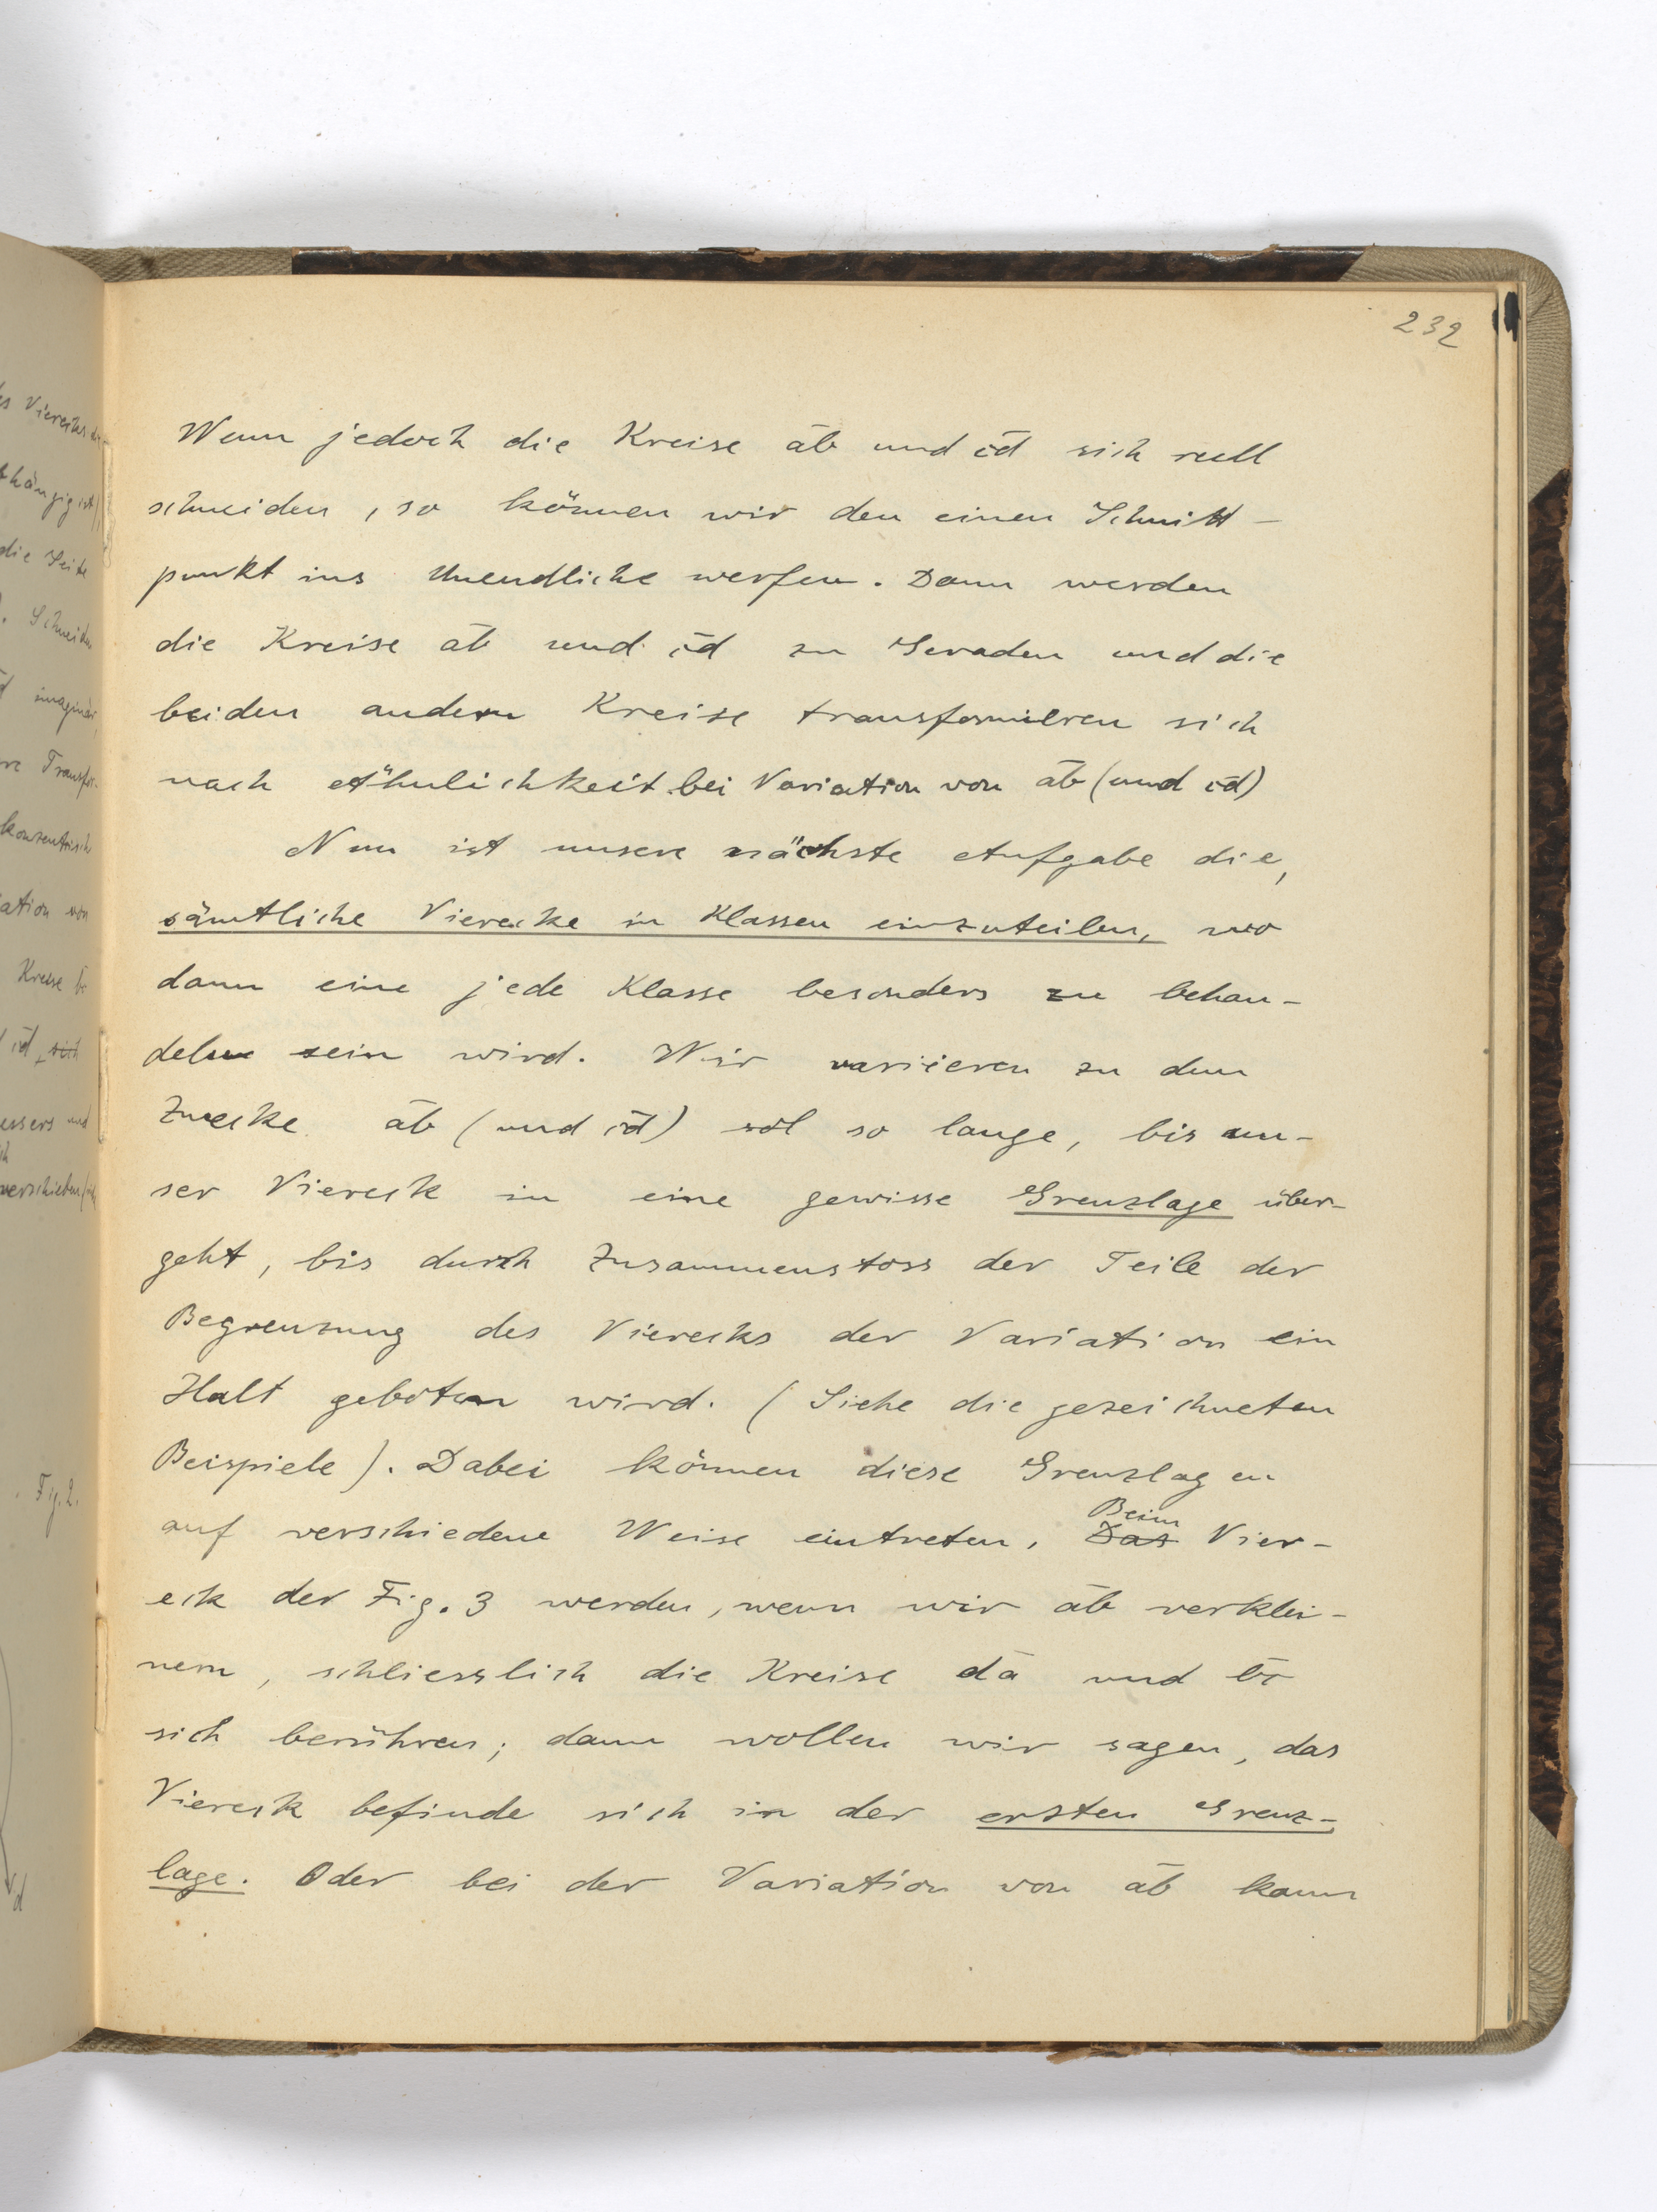 232
Wenn jedoch die Kreise a̅b̅ und c̅d̅ sich reell
schneiden, so können wir den einen Schnitt-
punkt ins Unendliche werfen. Dann werden
die Kreise a̅b̅ und c̅d̅ zu Geraden und die
beiden andern Kreise transformieren sich
nach Ähnlichkeit bei Variation von a̅b̅ (und c̅d̅)
Nun ist unsere nächste Aufgabe die,
sämtliche Vierecke in Klassen einzuteilen, wo
dann eine jede Klasse besonders zu behan-
deln sein wird. Wir variieren zu dem
Zwecke a̅b̅ (und c̅d̅) so lange, bis un-
ser Viereck in eine gewisse Grenzlage über-
geht, bis durch Zusammenstoss der Teile der
Begrenzung des Vierecks der Variation ein
Halt geboten wird. (Siehe die gezeichneten
Beispiele). Dabei können diese Grenzlagen
auf verschiedene Weise eintreten. Das Beim Vier-
eck der Fig. 3 werden, wenn wir a̅b̅ verklei-
nern, schliesslich die Kreise d̅a̅ und b̅c̅
sich berühren; dann wollen wir sagen, das
Viereck befinde sich in der ersten Grenz-
lage. Oder bei der Variation von a̅b̅ kann